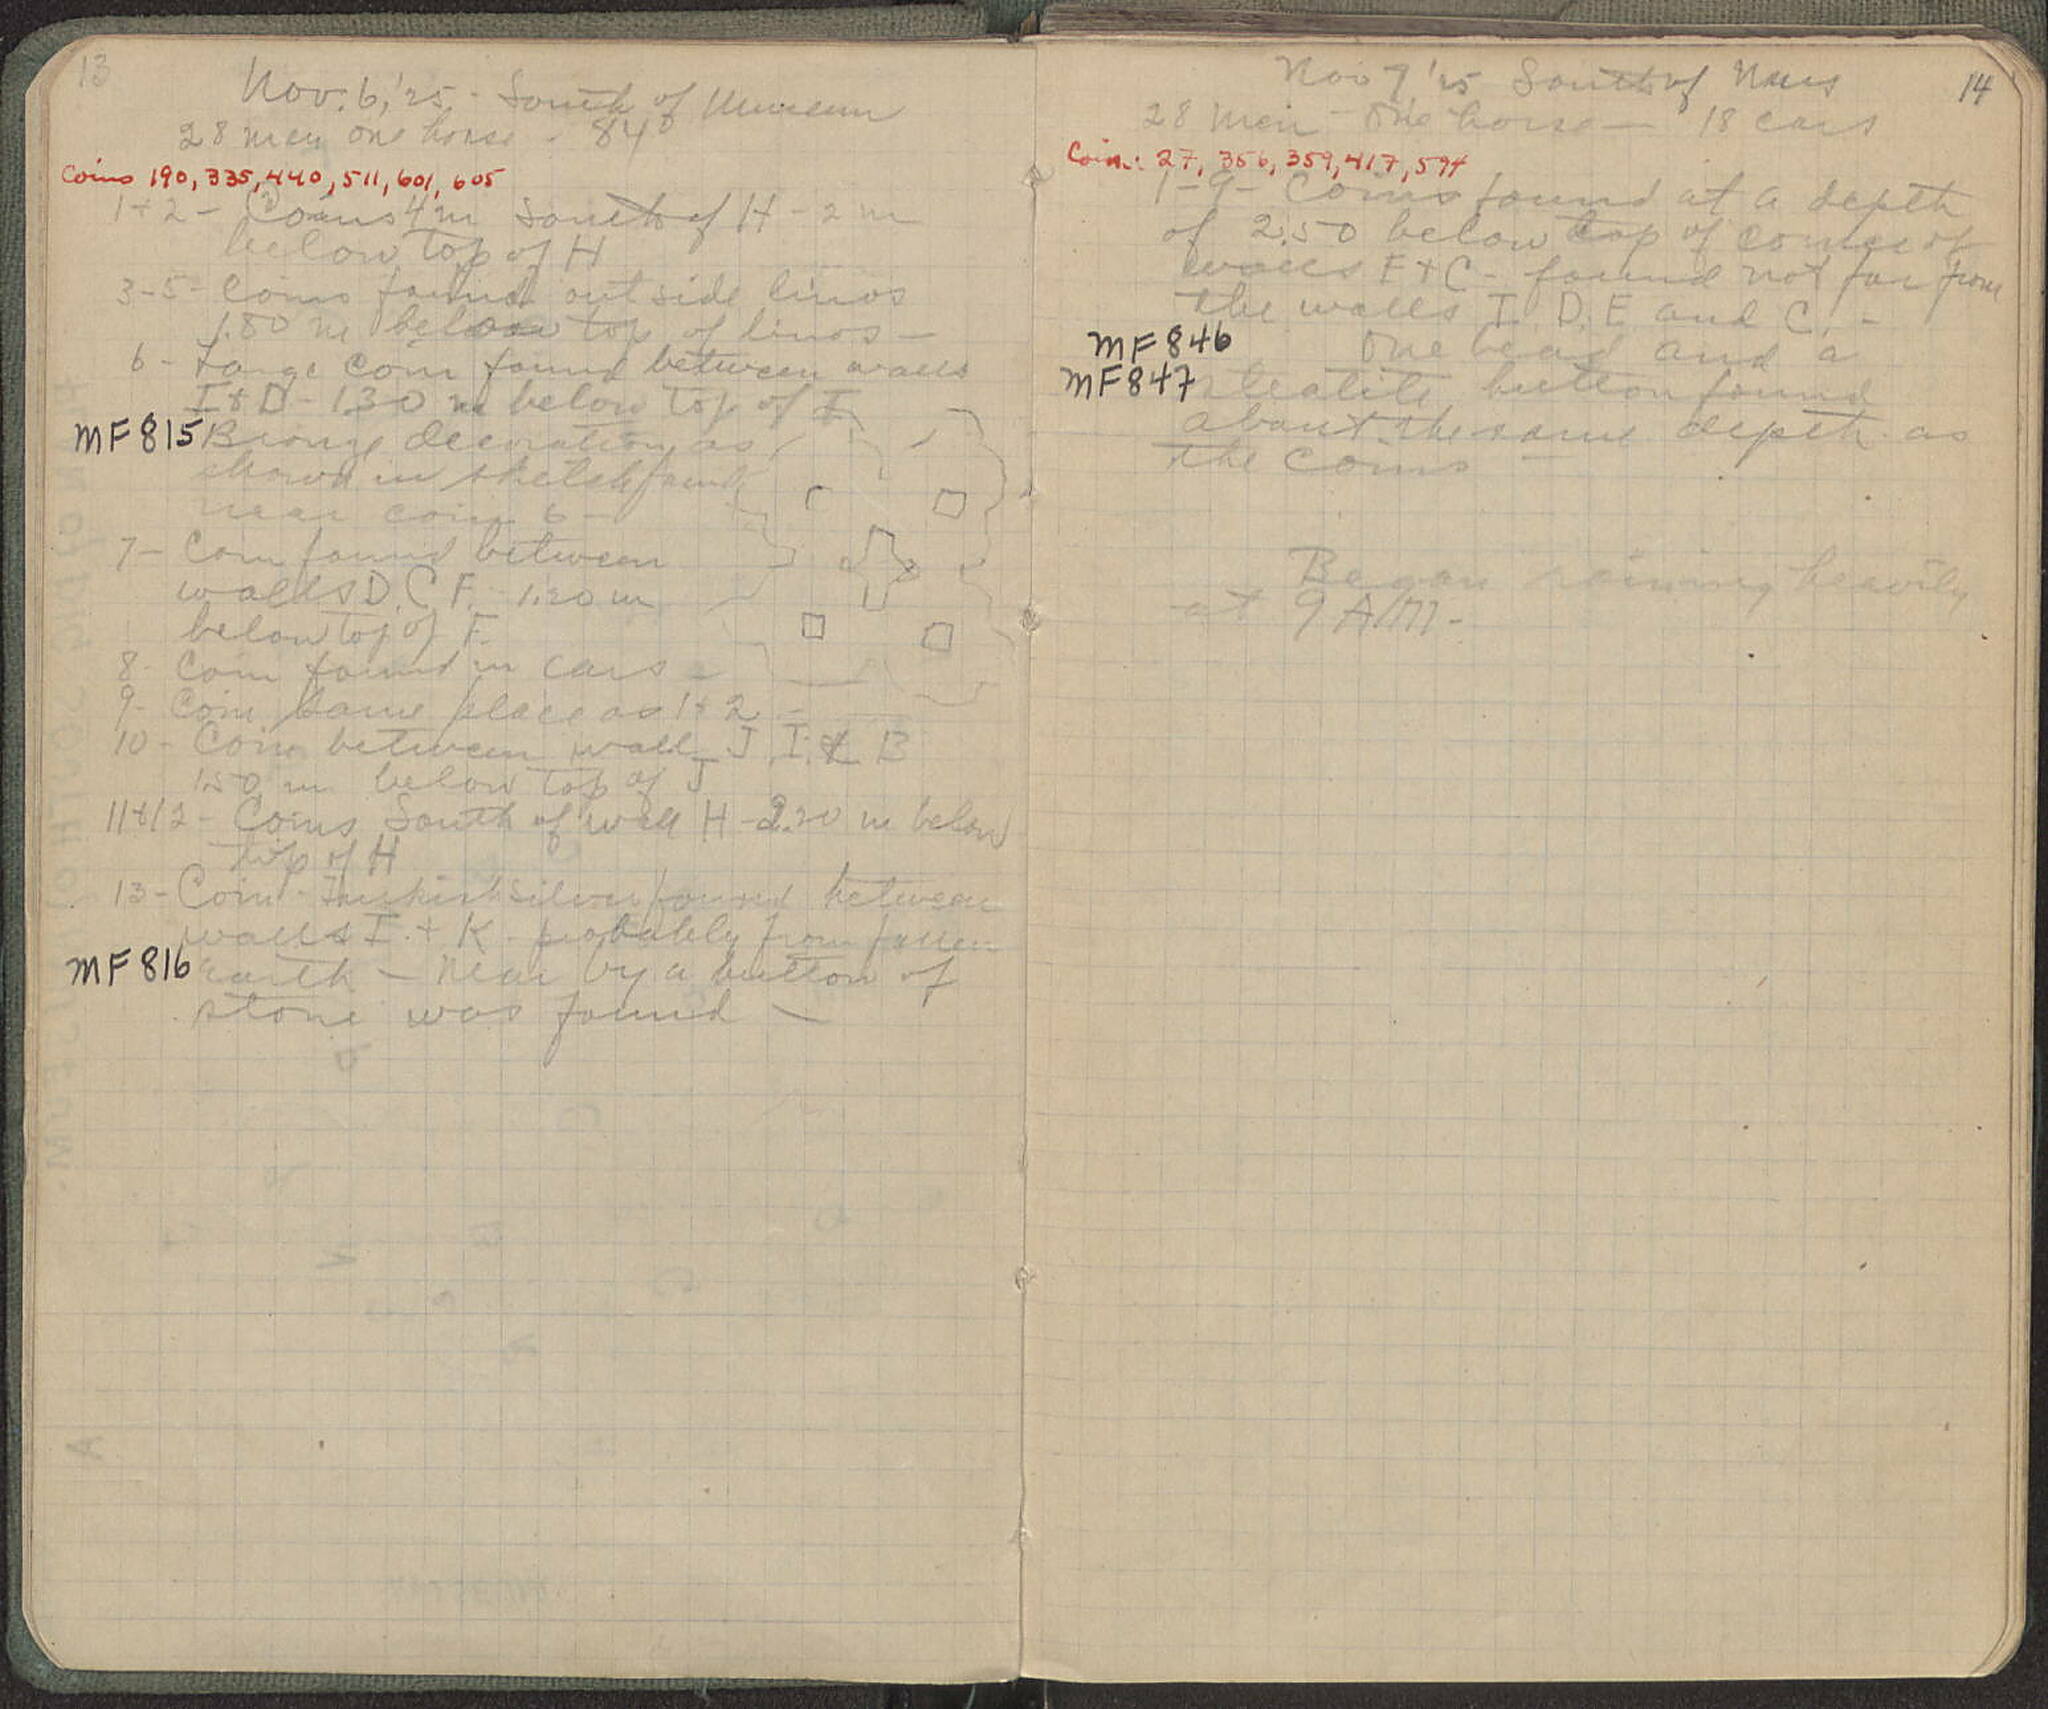 13
Nov. 6, '25 - South of Museum
28 men one horse - 84
Coins 190, 335, 440, 511, 601, 605
1+2 - Coins 4 m South of H - 2 m
below top of H
3-5- Coins found outside linos
1.80 m below top of linos -
6 - Large coin found between walls
I + D - 1.30 m below top of I
MF 815 Bronze decoration as
shown in sketch found
near coin 6 -
7 - Coin found between
walls D. C F. - 1.20 m
below top of F.
8 - Coin found in cars -
9 - Coin same place as 1+2 -
10 - Coin between wall J I. & B
1.50 m below top of J
11+12 - Coins South of wall H - 2.20 m below
top of H
13 - Coin - Turkish silver found between
walls I. + K. probably from fallen
MF 816 earth - Near by a button of
stone was found -
14
Nov 7 '25 South of Mus
28 men - One horse - 18 cars
Coin: 27, 356, 359, 417, 594
1-9- Coins found at a depth
of 2.50 below top of corner of
walls F + C - found not far from
the walls I. D. E and C. -
MF 846 One bead and a
MF 847 steatite button found
about the same depth as
the coins -
Began raining heavily
at 9 A.M. -